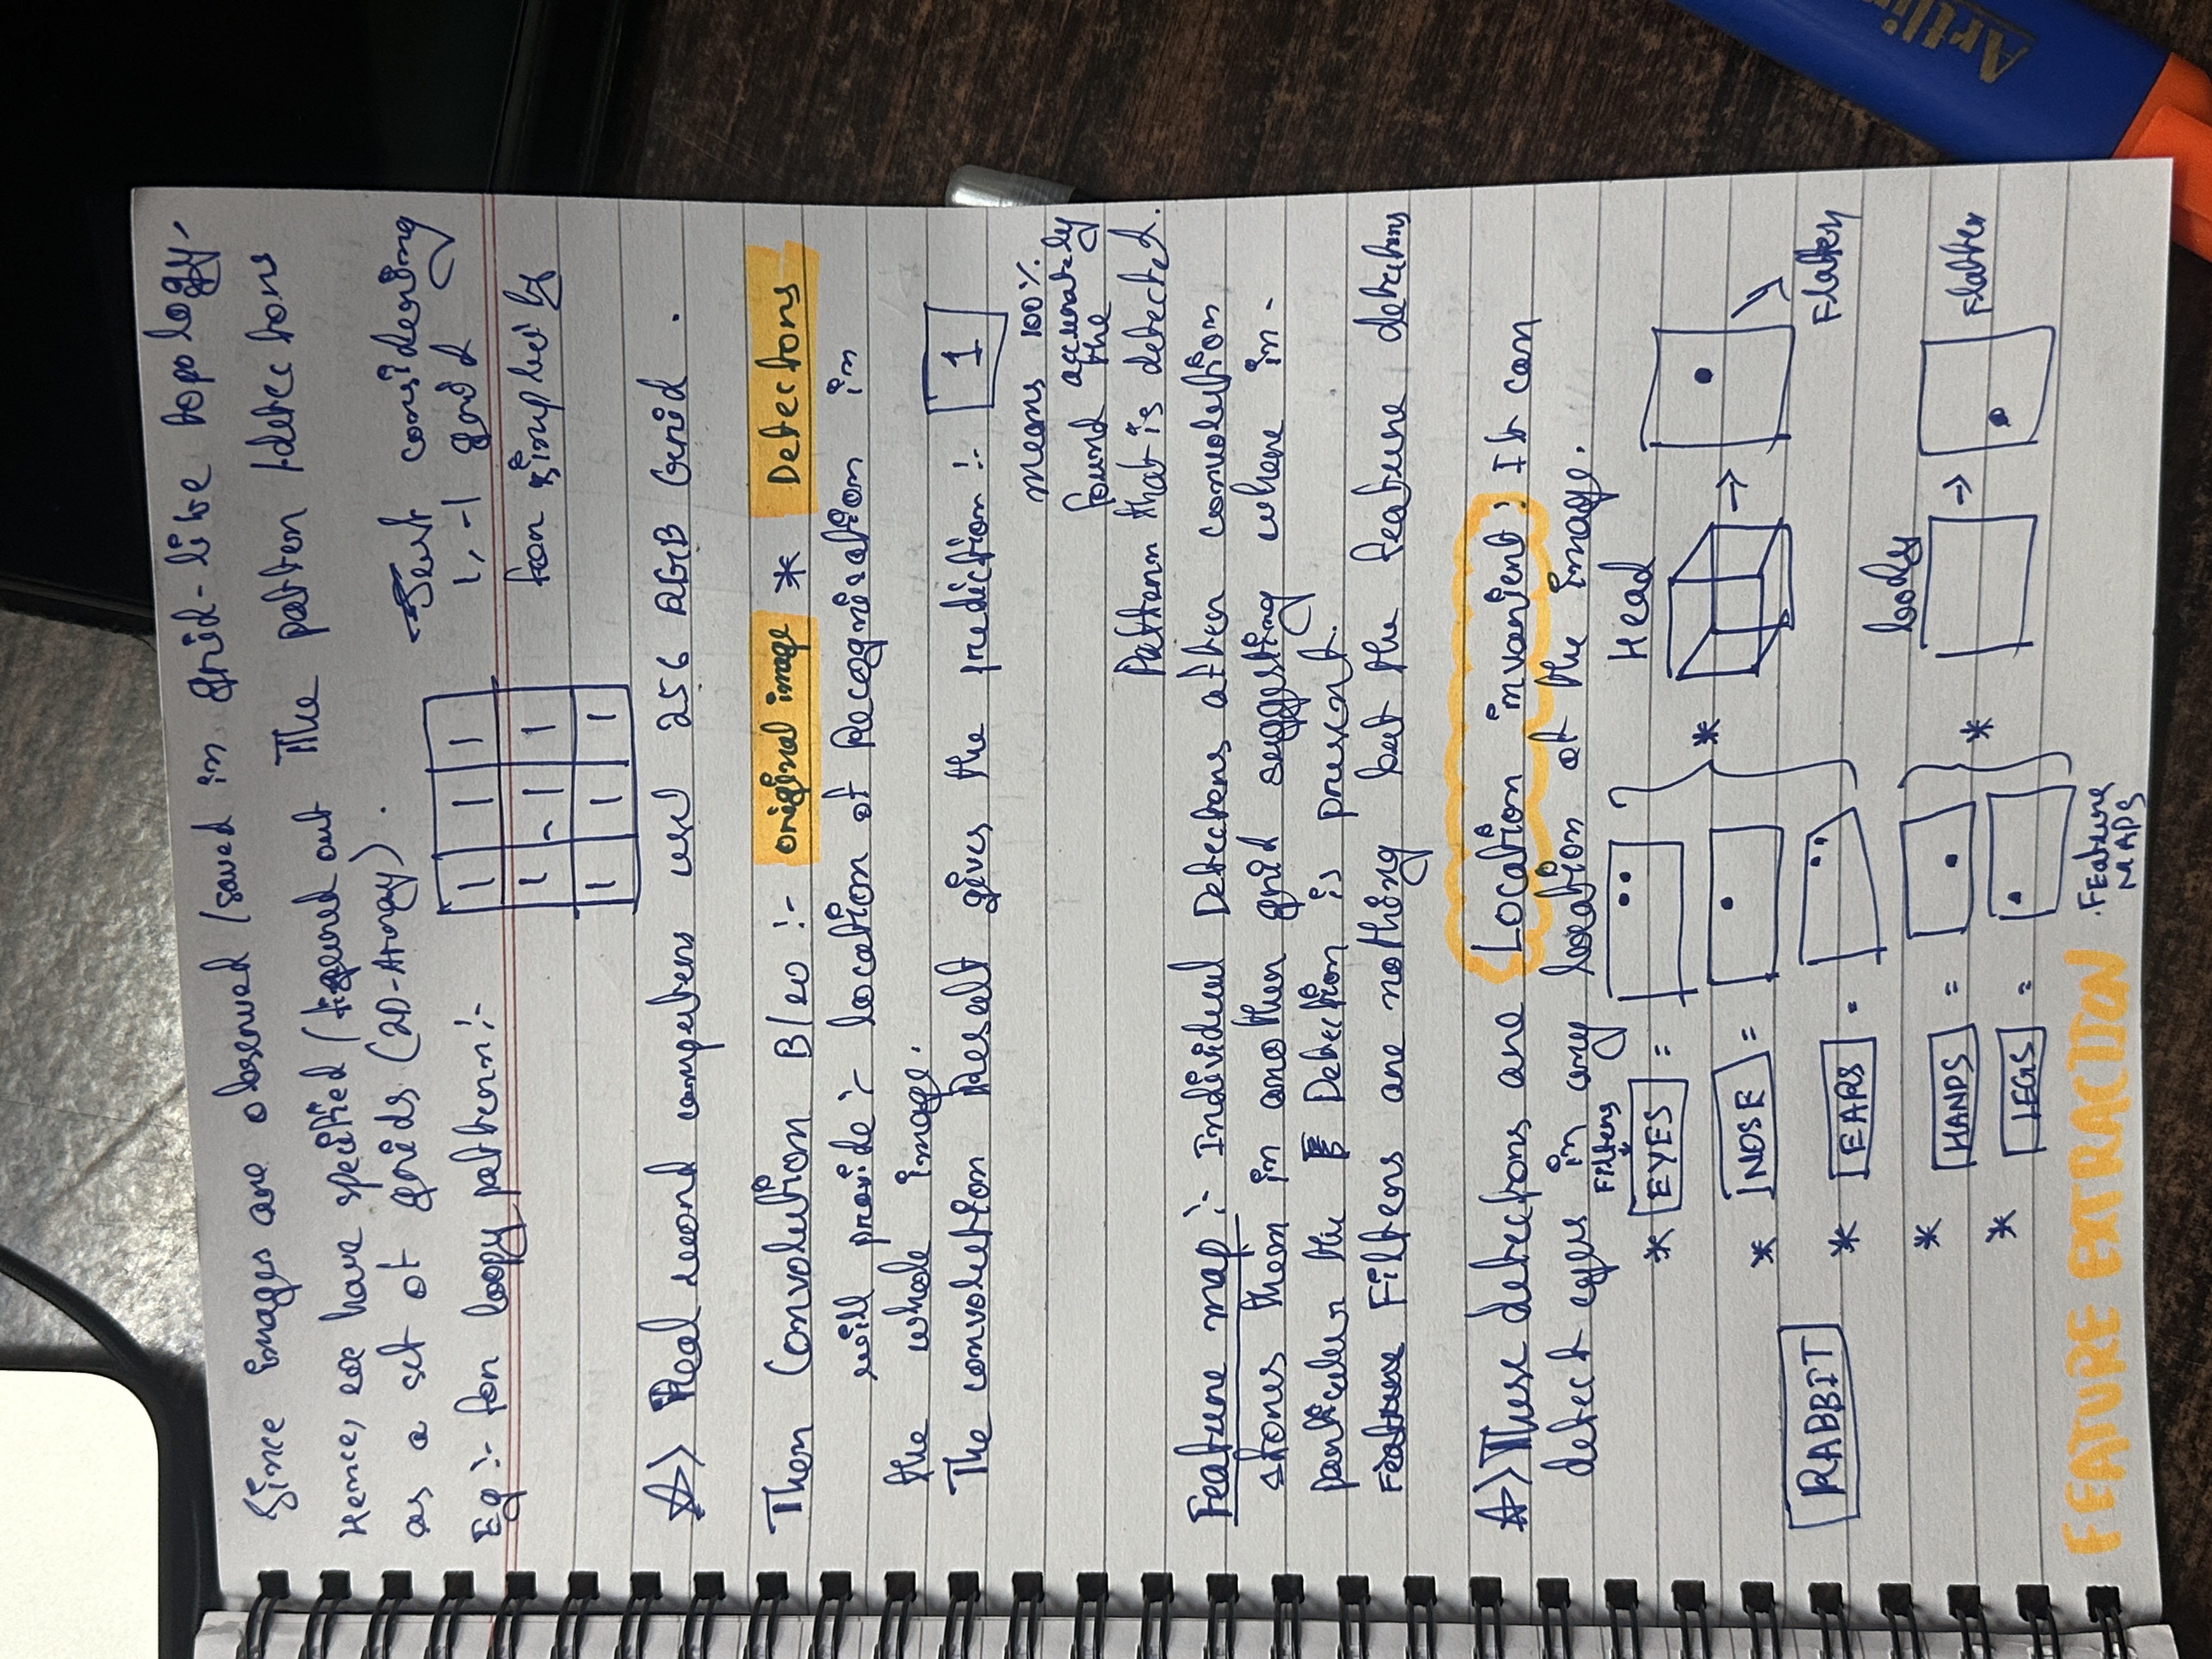 Since images are observed / saved in grid-like topology.
Hence, we have specified / figured out The pattern / detectors
as a set of grids (2D-Array).
Just considering
1, -1 grid
for simplicity
Eg :- for loopy pattern :-
1 1 1
1 -1 1
1 1 1
Real world computers use 256 RGB Grid.
Then Convolution B/w :- original image * Detectors
will provide :- location of Recognisation in
the whole image.
The convolution Result gives the prediction :- 1
means 100%
accurately
found the
Pattern that is detected.
Feature map :- Individual Detectors after convolution
stores them in another grid suggesting where in-
particular the Detection is present.
Feature Filters are nothing but the feature detectors
These detectors are Location invarient : It can
detect eyes in any location of the image.
Filters
* EYES =
Head
* NOSE =
*
RABBIT
* EARS =
Flatten
body
* HANDS =
*
Flatten
* LEGS =
FEATURE EXTRACTION
Feature
MAPS
Artlin